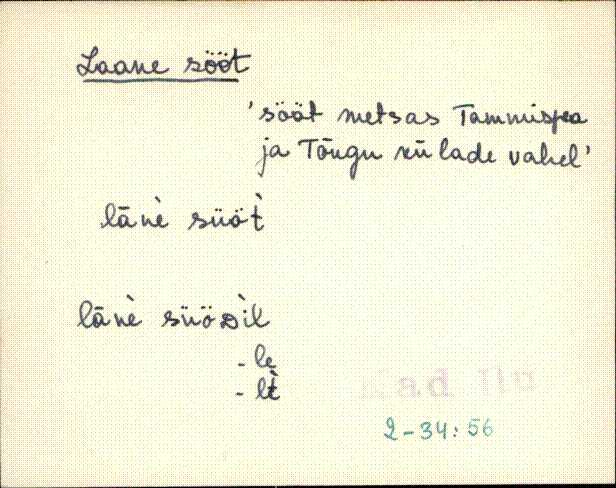 Laane sööt
'sööt metsas Tammispea
ja Tõugu külade vahel'
lāǹe süöt̀
lāǹe süöᴅ̀il
- le
- lt̀
Had Ilu
2-34:56